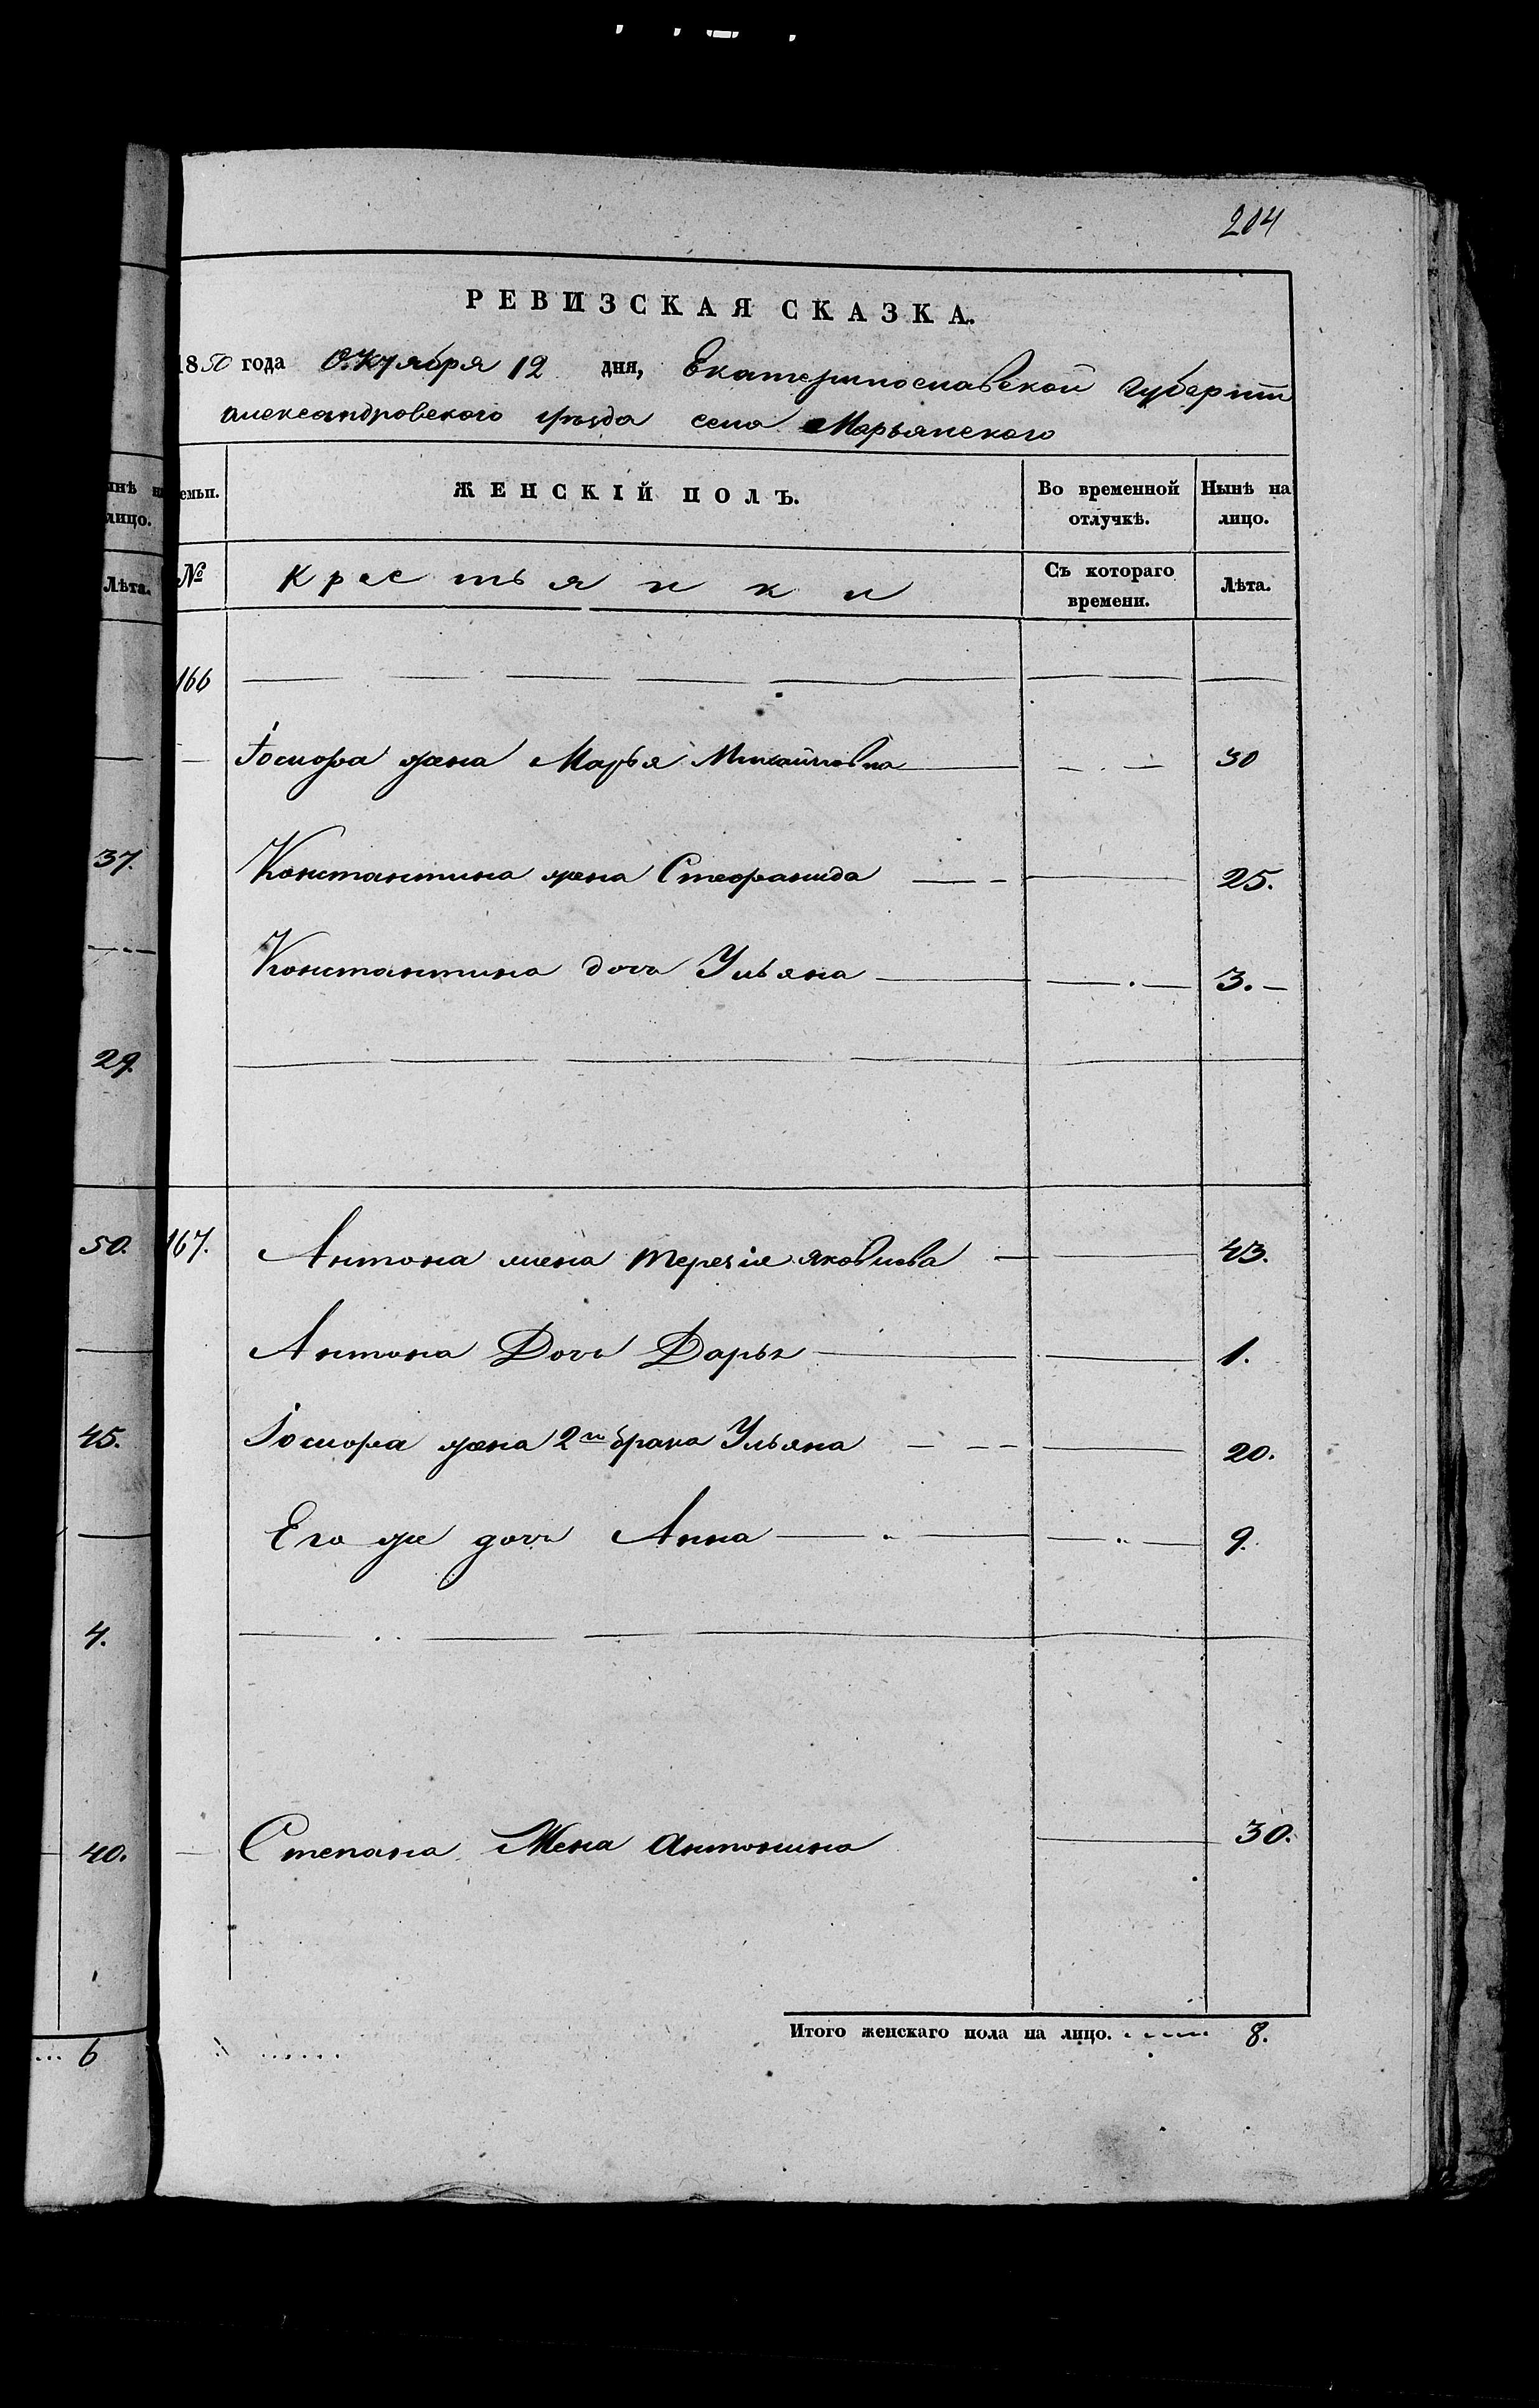 204
РЕВИЗСКАЯ СКАЗКА.
1850 года Октября 12 дня, Екатеринославской Губернии
Александровского уѣзда села Марьянского
емьи. ЖЕНСКІЙ ПОЛЪ. Во временной отлучкѣ. Нынѣ на лицо.
№ Крестьянки Съ котораго времени. Лѣта.
166
Іосифа жена Марья Михайловна 30
Константина жена Стефанида 25.
Константина дочь Ульяна 3.
167. Антона жена Терезія Яковлева 43.
Антона Дочь Дарья 1.
Іосифа жена 2го брака Ульяна 20.
Его же дочь Анна 9.
Степана Жена Антонина 30.
Итого женскаго пола на лицо. 8.
ынѣ н
лицо.
Лѣта.
37.
29.
50.
45.
4.
40.
6